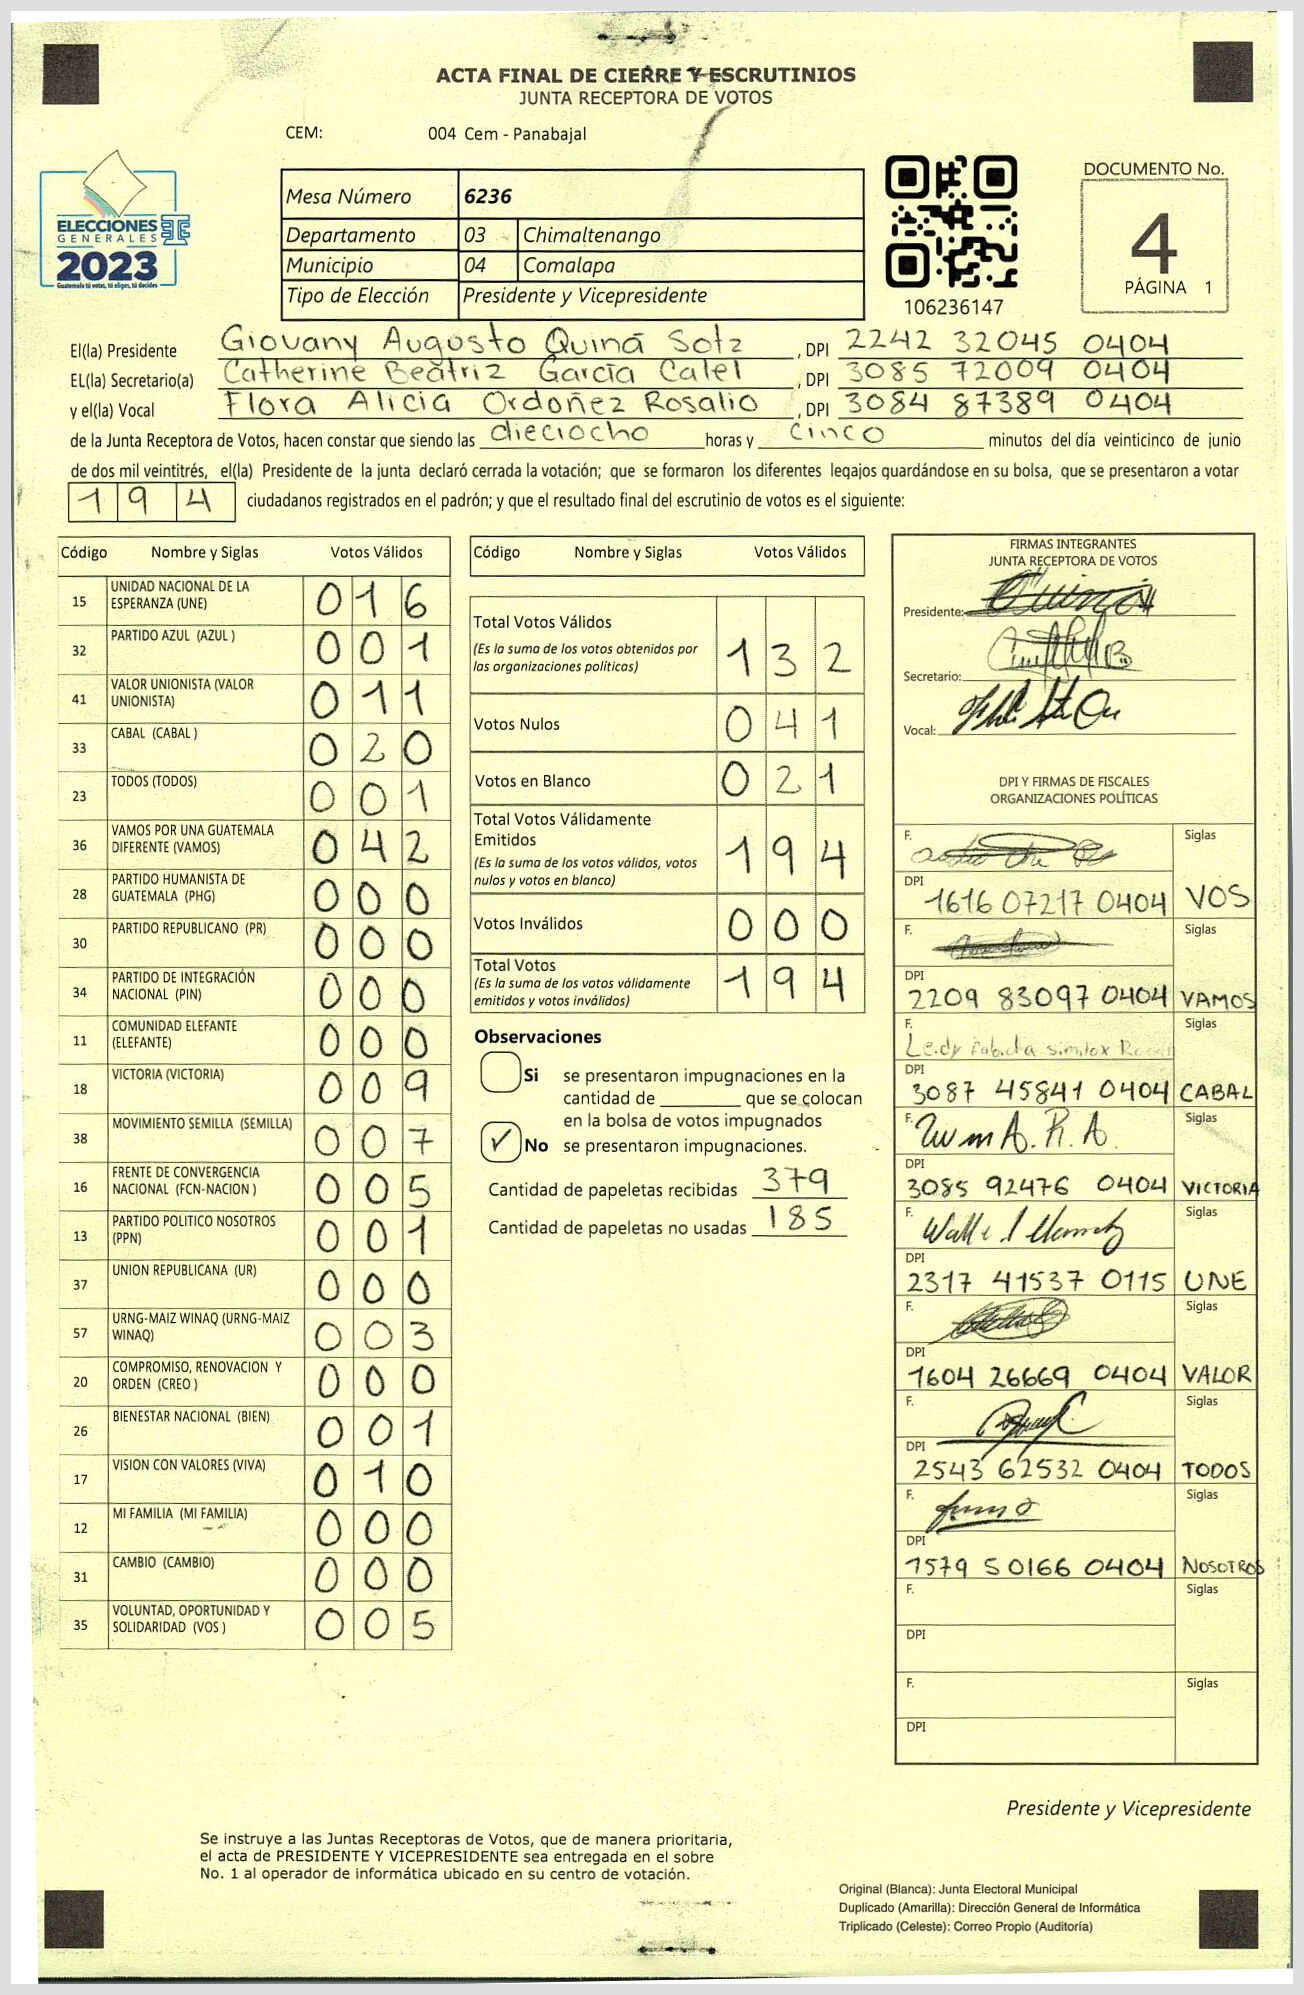 ACTA FINAL DE CIERRE Y ESCRUTINIOS
JUNTA RECEPTORA DE VOTOS
CEM: 004 Cem - Panabajal
ELECCIONES
GENERALES
2023
Guatemala tú votas, tú eliges, tú decides
Mesa Número 6236
Departamento 03 Chimaltenango
Municipio 04 Comalapa
Tipo de Elección Presidente y Vicepresidente
106236147
DOCUMENTO No.
4
PÁGINA 1
El(la) Presidente Giovany Augusto Quiná Sotz , DPI 2242 32045 0404
EL(la) Secretario(a) Catherine Beatriz García Calel , DPI 3085 72009 0404
y el(la) Vocal Flora Alicia Ordoñez Rosalio , DPI 3084 87389 0404
de la Junta Receptora de Votos, hacen constar que siendo las dieciocho horas y cinco minutos del día veinticinco de junio
de dos mil veintitrés, el(la) Presidente de la junta declaró cerrada la votación; que se formaron los diferentes legajos guardándose en su bolsa, que se presentaron a votar
194 ciudadanos registrados en el padrón; y que el resultado final del escrutinio de votos es el siguiente:
Código Nombre y Siglas Votos Válidos
15 UNIDAD NACIONAL DE LA
ESPERANZA (UNE) 016
32 PARTIDO AZUL (AZUL ) 001
41 VALOR UNIONISTA (VALOR
UNIONISTA) 011
33 CABAL (CABAL ) 020
23 TODOS (TODOS) 001
36 VAMOS POR UNA GUATEMALA
DIFERENTE (VAMOS) 042
28 PARTIDO HUMANISTA DE
GUATEMALA (PHG) 000
30 PARTIDO REPUBLICANO (PR) 000
34 PARTIDO DE INTEGRACIÓN
NACIONAL (PIN) 000
11 COMUNIDAD ELEFANTE
(ELEFANTE) 000
18 VICTORIA (VICTORIA) 009
38 MOVIMIENTO SEMILLA (SEMILLA) 007
16 FRENTE DE CONVERGENCIA
NACIONAL (FCN-NACION ) 005
13 PARTIDO POLITICO NOSOTROS
(PPN) 001
37 UNION REPUBLICANA (UR) 000
57 URNG-MAIZ WINAQ (URNG-MAIZ
WINAQ) 003
20 COMPROMISO, RENOVACION Y
ORDEN (CREO ) 000
26 BIENESTAR NACIONAL (BIEN) 001
17 VISION CON VALORES (VIVA) 010
12 MI FAMILIA (MI FAMILIA) 000
31 CAMBIO (CAMBIO) 000
35 VOLUNTAD, OPORTUNIDAD Y
SOLIDARIDAD (VOS ) 005
Código Nombre y Siglas Votos Válidos
Total Votos Válidos
(Es la suma de los votos obtenidos por
las organizaciones políticas) 132
Votos Nulos 041
Votos en Blanco 021
Total Votos Válidamente
Emitidos
(Es la suma de los votos válidos, votos
nulos y votos en blanco) 194
Votos Inválidos 000
Total Votos
(Es la suma de los votos válidamente
emitidos y votos inválidos) 194
Observaciones
Si se presentaron impugnaciones en la
cantidad de ________ que se colocan
en la bolsa de votos impugnados
✓ No se presentaron impugnaciones.
Cantidad de papeletas recibidas 379
Cantidad de papeletas no usadas 185
FIRMAS INTEGRANTES
JUNTA RECEPTORA DE VOTOS
Presidente:
Secretario:
Vocal:
DPI Y FIRMAS DE FISCALES
ORGANIZACIONES POLÍTICAS
F. Siglas
DPI
1616 07217 0404 VOS
F. Siglas
DPI
2209 83097 0404 VAMOS
F. Siglas
DPI
3087 45841 0404 CABAL
F. Siglas
DPI
3085 92476 0404 VICTORIA
F. Siglas
DPI
2317 41537 0115 UNE
F. Siglas
DPI
1604 26669 0404 VALOR
F. Siglas
DPI
2543 62532 0404 TODOS
F. Siglas
DPI
1579 50166 0404 NOSOTROS
F. Siglas
DPI
F. Siglas
DPI
Presidente y Vicepresidente
Se instruye a las Juntas Receptoras de Votos, que de manera prioritaria,
el acta de PRESIDENTE Y VICEPRESIDENTE sea entregada en el sobre
No. 1 al operador de informática ubicado en su centro de votación.
Original (Blanca): Junta Electoral Municipal
Duplicado (Amarilla): Dirección General de Informática
Triplicado (Celeste): Correo Propio (Auditoría)